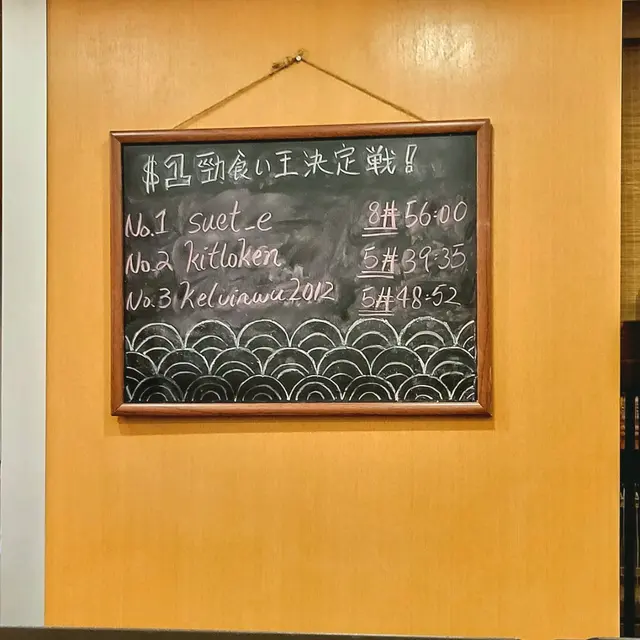 $1勁食い王決定戦!
No.1 suet_e 8# 56:00
No.2 kitloken 5# 39:35
No.3 kelvinwu2012 5# 48:52